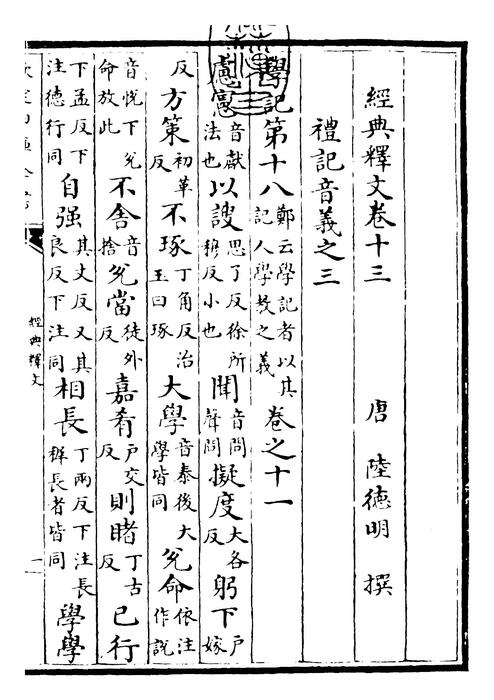 經典釋文卷十三
唐 陸德明 撰
禮記音義之三
學記第十八鄭云學記者以其記人學教之義卷之十一
慮憲音獻法也以謏思了反徐所穆反小也聞音問聲問擬度大各反躬下戶嫁
反方策初革反不琢丁角反治玉曰琢大學音泰後大學皆同兊命依注作說
音悅下兊命放此不舍音捨兊當徒外反嘉肴戶交反則睹丁古反已行
下孟反下注德行同自强其丈反又其良反下注同相長丁兩反下注長稺長者皆同學學
經典釋文
一